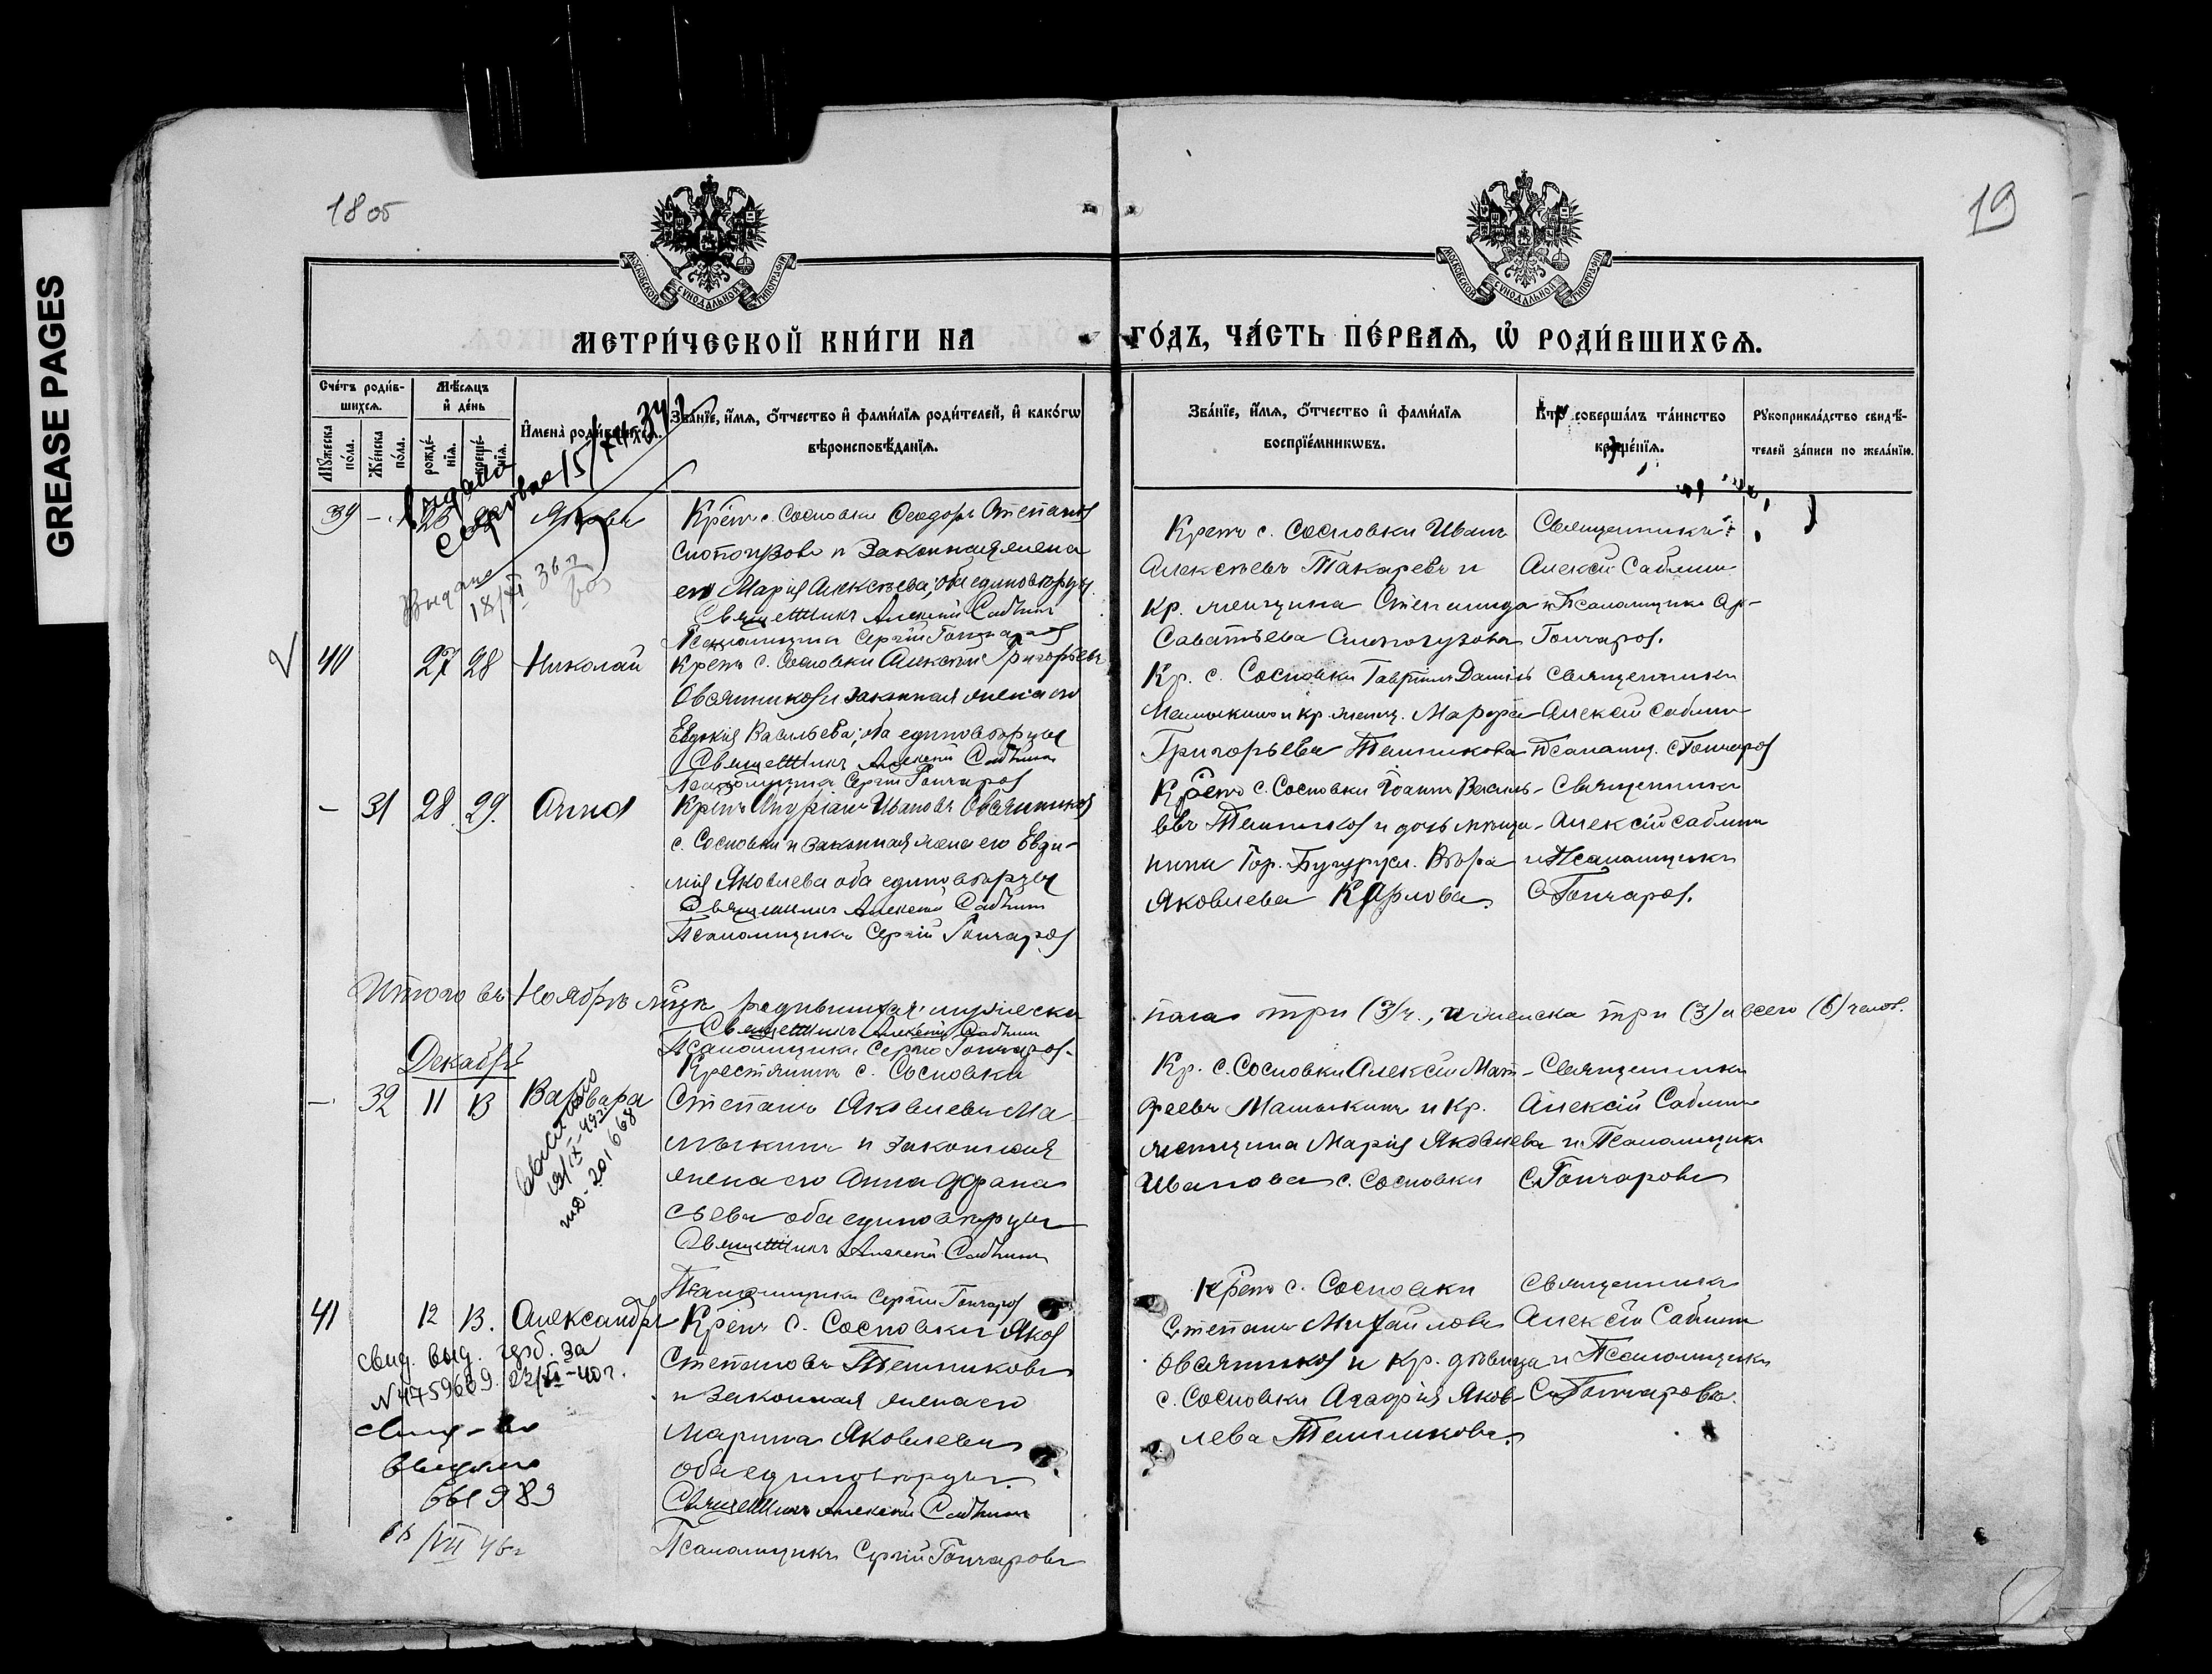 GREASE PAGES
1805
19
МОСКОВСКОЙ СѴНОДАЛЬНОЙ ТИПОГРАФІИ
МОСКОВСКОЙ СѴНОДАЛЬНОЙ ТИПОГРАФІИ
МЕТРИ́ЧЕСКОЙ КНИ́ГИ НА
ГО́ДЪ, ЧА́СТЬ ПЕ́РВАѦ, Ѽ РОДИ́ВШИХСѦ.
Сче́тъ роди́в-
шихсѧ.
Мꙋ́жеска
по́ла.
Же́нска
по́ла.
Мѣ́сѧцъ
и҆ де́нь
рожде́-
нїѧ.
креще́-
нїѧ.
И҆мена̀ роди́вшихсѧ.
Зва́нїе, и҆́мѧ, ѻ҆́тчество и҆ фами́лїѧ роди́телей, и҆ како́гѡ
вѣроисповѣ́данїѧ.
Зва́нїе, и҆́мѧ, ѻ҆́тчество и҆ фами́лїѧ
воспрїе́мникѡвъ.
Кто̀ соверша́лъ та́инство
креще́нїѧ.
Рꙋкоприкла́дство свидѣ́-
телей за́писи по жела́нїю.
39 – Яковъ
Крест. с. Сосновки Ѳеодоръ Степановъ
и Законная жена
его Марія Алексѣева, оба единовѣрцы.
Священникъ Алексій Саблинъ
Псаломщикъ Сергій Гончаровъ
Крест. с. Сосновки Иванъ
Алексѣевъ Токаревъ и
Кр. женщина Степанида
Саватѣева
Священникъ
Алексій Саблинъ
и Псаломщикъ Ср-
Гончаровъ.
Выдано
18/XI 36 г
40 27 28 Николай
Крест. с. Сосновки Алексѣй Григорьевъ
Овсянниковъ и законная жена его
Евдокія Васильева; оба единовѣрцы
Священникъ Алексій Саблинъ
Псаломщикъ Сергій Гончаровъ
Кр. с. Сосновки Гавріилъ Даніил
Мамыкинъ и кр. женщ. Марѳа
Григорьева Тенникова
Священникъ
Алексій Саблинъ
Псаломщ. С Гончаровъ
– 31 28 29. Анна
Крест. Иванъ Овсянниковъ
с. Сосновки и законная жена его Евдо-
кія Яковлева оба единовѣрцы
Священникъ Алексій Саблинъ
Псаломщикъ Сергій Гончаровъ
Крест. с. Сосновки Іоаннъ Василь-
евъ Тенниковъ и дочь мѣща-
нина Гор. Бугурусл. Вѣра
Яковлева Карлова.
Священникъ
Алексій Саблинъ
и Псаломщикъ
С Гончаровъ.
Итого въ Ноябрѣ м҃цѣ родившихся мужеска
пола три (3) ч., и женска три (3) а всего (6) челов.
Священникъ Алексій Саблинъ
Псаломщикъ Сергій Гончаровъ
Декабрь
– 32 11 13 Варвара
Крестьянинъ с. Сосновки
Степанъ Яковлевъ Ма-
мыкинъ и законная
жена его Анна Афана
сьева оба единовѣрцы
Священникъ Алексій Саблинъ
Псаломщикъ Сергій Гончаровъ
Кр. с. Сосновки Алексѣй Мат-
ѳеевъ Мамыкинъ и Кр.
женщина Марія Яковлева
Иванова с. Сосновки
Священникъ
Алексій Саблинъ
и Псаломщикъ
С. Гончаровъ
201668
41 12 13. Александръ
Крест. с. Сосновки Яковъ
Степановъ Тенниковъ
и Законная жена его
Марина Яковлева
оба единовѣрцы.
Священникъ Алексій Саблинъ
Псаломщикъ Сергій Гончаровъ
Крест. с. Сосновки
Степанъ Михайловъ
Овсянниковъ и Кр. дѣвица
с. Сосновки Агафія Яков-
лева Тенникова.
Священникъ
Алексій Саблинъ
и Псаломщикъ
С. Гончаровъ.
свид. выд. за
№ 4759609. 23/XI-40 г.
Свид-во
выдано
661989
/VII 46 г